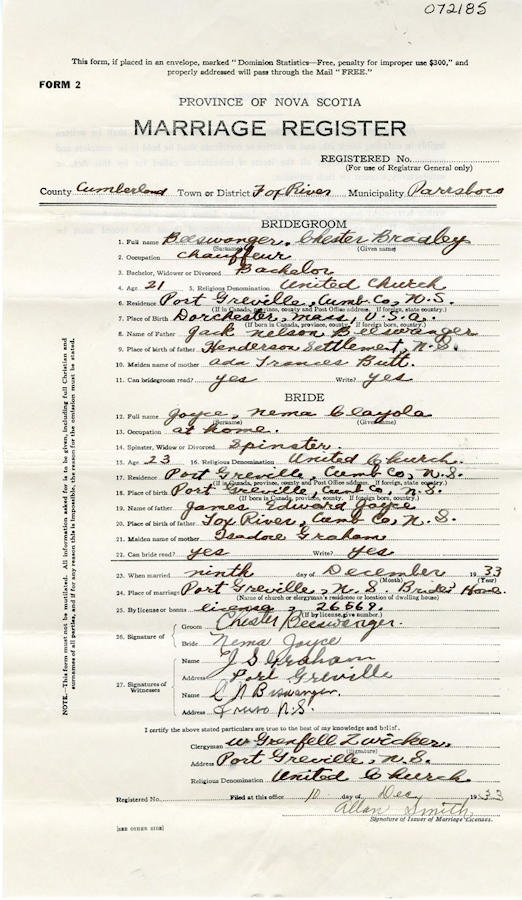 072185
This form, if placed in an envelope, marked "Dominion Statistics—Free, penalty for improper use $300," and
properly addressed will pass through the Mail "FREE."
FORM 2
PROVINCE OF NOVA SCOTIA
MARRIAGE REGISTER
REGISTERED No.
(For use of Registrar General only)
County Cumberland Town or District Fox River Municipality Parrsboro
BRIDEGROOM
1. Full name Beeswanger, Chester Bradley
(Surname) (Given name)
2. Occupation Chauffeur
3. Bachelor, Widower or Divorced Bachelor
4. Age 21 5. Religious Denomination United Church
6. Residence Port Greville, Cumb Co, N.S.
(If in Canada, province, county and Post Office address. If foreign, state country)
7. Place of Birth Dorchester, Mass, U.S.a.
(If born in Canada, province, county. If foreign born, country)
8. Name of Father Jack Nelson Beeswanger
9. Place of birth of father Henderson Settlement, N.S.
10. Maiden name of mother Ada Frances Butt.
11. Can bridegroom read? yes Write? yes
BRIDE
12. Full name Joyce, Nema Clayola
(Surname) (Given name)
13. Occupation at home.
14. Spinster, Widow or Divorced Spinster.
15. Age 23 16. Religious Denomination United Church.
17. Residence Port Greville, Cumb Co, N.S.
(If in Canada, province, county and Post Office address. If foreign, state country)
18. Place of birth Port Greville, Cumb Co, N.S.
(If born in Canada, province, county. If foreign born, country)
19. Name of father James Edward Joyce
20. Place of birth of father Fox River, Cumb Co, N.S.
21. Maiden name of mother Isadore Graham
22. Can bride read? yes Write? yes
23. When married ninth day of December 1933
(Month) (Year)
24. Place of marriage Port Greville, N.S. Brides Home.
(Name of church or clergyman's residence or location of dwelling house)
25. By license or banns license, 26569.
(If by license, give number.)
26. Signature of
Groom Chester Beeswanger.
Bride Nema Joyce
27. Signatures of Witnesses
Name J S Graham
Address Port Greville
Name Beeswanger.
Address Truro N.S.
I certify the above stated particulars are true to the best of my knowledge and belief.
Clergyman W Grenfell Zwicker,
(Signature)
Address Port Greville, N.S.
Religious Denomination United Church
Registered No. Filed at this office 10 day of Dec 1933
Allan Smith
Signature of Issuer of Marriage Licenses.
[SEE OTHER SIDE]
NOTE.—This form must not be mutilated. All information asked for is to be given, including full Christian and
surnames of all parties, and if this is impossible, the reason for the omission must be stated.